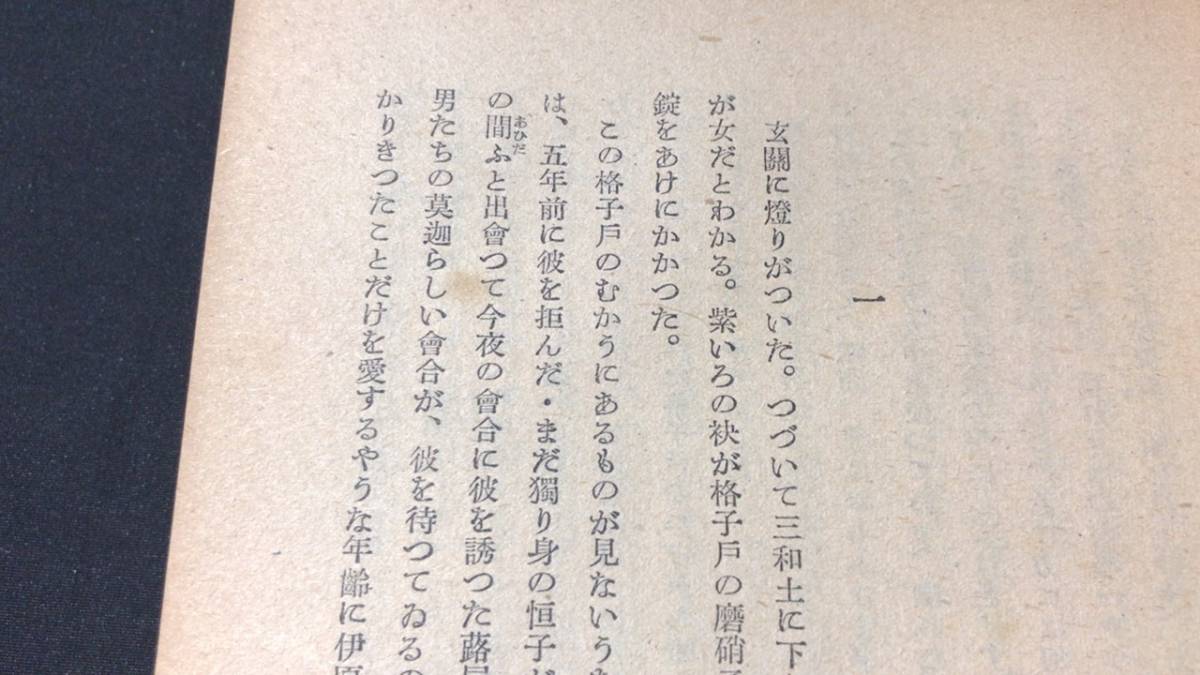 一
玄關に燈りがついた。つづいて三和土に下
が女だとわかる。紫いろの袂が格子戸の磨硝
錠をあけにかかつた。
この格子戸のむかうにあるものが見ないう
は、五年前に彼を拒んだ・まだ獨り身の恒子が
の間あひだふと出會つて今夜の會合に彼を誘つた蕗屋
男たちの莫迦らしい會合が、彼を待つてゐるの
かりきつたことだけを愛するやうな年齡に伊原